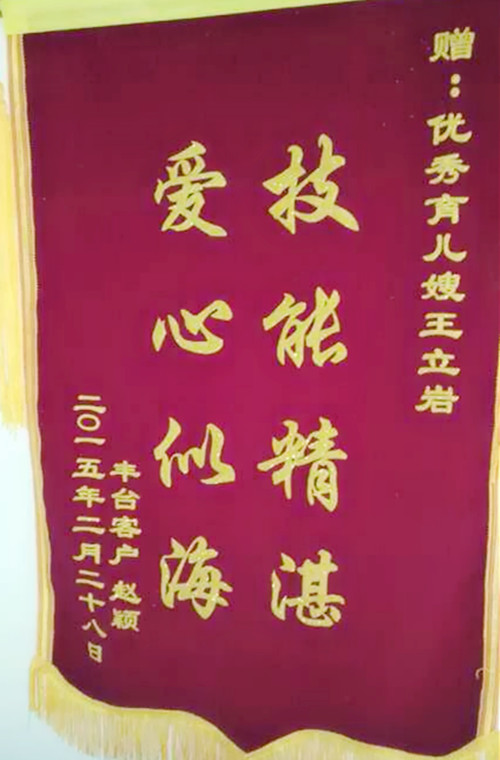 赠：优秀育儿嫂王立岩
技能精湛
爱心似海
丰台客户 赵颖
二〇一五年二月二十八日